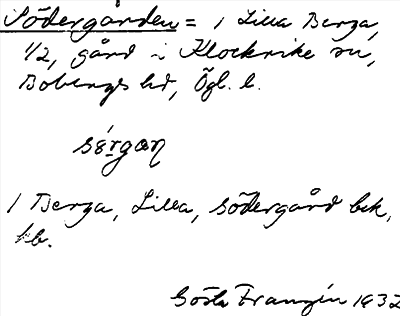 Södergården = 1 Lilla Berga,
1/2, gård i Klockrike sn,
Bobergs hd, Ögl. l.
sörgan
1 Berga, Lilla, Södergård bek,
kb.
Gösta Franzén 1932